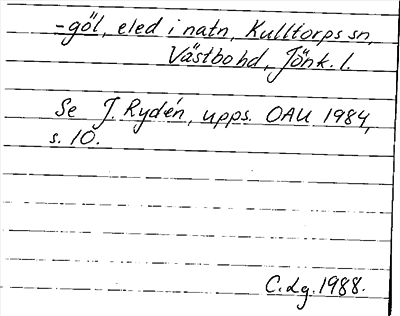 -göl, eled i natn, Kulltorps sn,
Västbo hd, Jönk. l.
Se J. Rydén, upps. OAU 1984,
s. 10.
C. Lg. 1988.